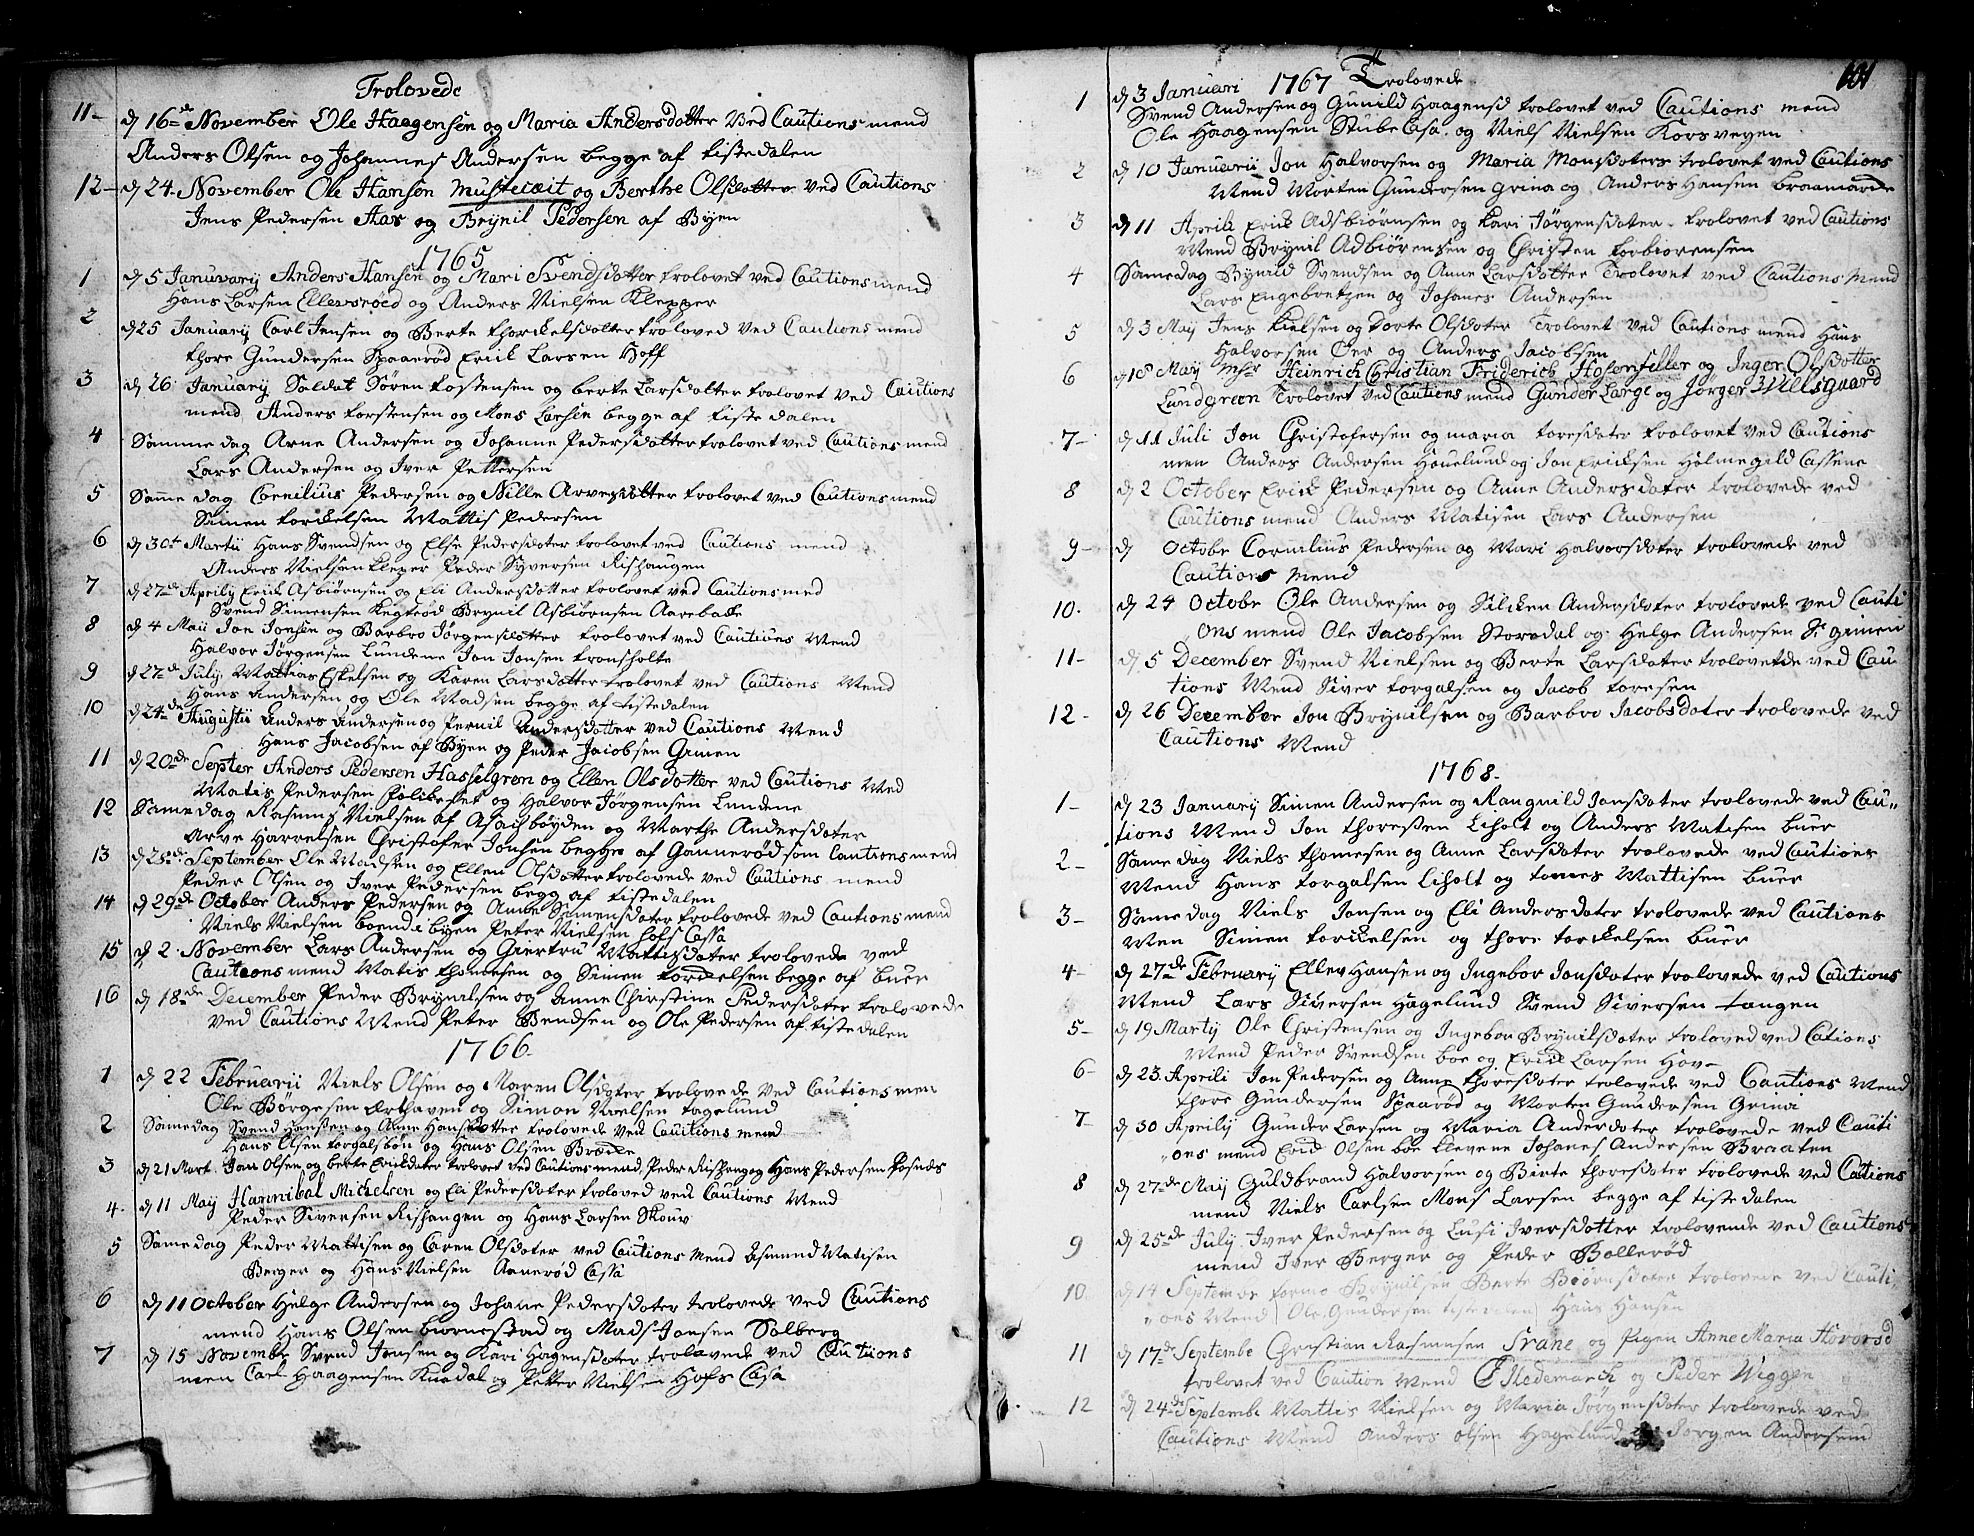 Trolovede
11- d 16de November Ole Haagensen og Maria Andersdotter Ved Cautions mend
Anders Olsen og Johannes Andersen begge af tistedalen
12- d 24 November Ole Hansen og Berthe Olsdotter ved Cautions
Jens Pedersen Aas og Brynil Pedersen af Byen
1765
1 d 5 Januvarij Anders Hansen og Mari Svendsdotter trolovet ved Cautions mend
Hans Larsen Ellevsröed og Anders Nielsen Klepper
2 d 25 Januarij Carl Jensen og Berte thorckelsdotter troloved Ved Cautions mend
thore Gundersen Spaarød Erick Larsen Hoff
3 d 26 Januarij Soldat Søren torstensen og berte Larsdotter trolovet ved Cautions
mend Anders torstensen og Mons Larsen begge af tistedalen
4 Samme dag Arne Andersen og Johanne Pedersdotter trolovet ved Cautions mend
Lars Andersen og Iver Pettersen
5 Samme dag Cornilius Pedersen og Nille Arvesdotter trolovet ved Cautions mend
Simen torckelsen Mattis Pedersen
6 d 30t Martii Hans Svendsen og Else Pedersdoter trolovet ved Cautions mend
Anders Nielsen Kleper Peder Syversen Rishaugen
7 d 27de Aprily Erick Asbiørnsen og Eli Andersdotter trolovet ved Cautions med
Svend Simensen Brynil Asbiørnsen Aareback
8 d 4 Maii Jon Jonsen og Barbro Jørgensdotter trolovet ved Cautions Mend
Halvor Jørgensen Lundene Jon Jonsen
9 d 27de July Mattias Eskelsen og Karen Larsdotter trolovet ved Cautions Mend
Hans Andersen og Ole Madsen begge af tistedalen
10 d 24de Augustii Anders Andersen og Pernil Andersdotter ved Cautions Mend
Hans Jacobsen af Byen og Peder Jacobsen Grinen
11 d 20de Septer Anders Pedersen Hasselgren og Ellen Olsdotter ved Cautions Med
Matis Pedersen og Halvor Jørgensen Lundene
12 Same dag Rasmus Nielsen af og Marthe Andersdoter
Arve Harvelsen Christofer Jonsen begge af Gannerød som Cautions mend
13 d September Ole Madsen og Ellen Olsdotter trolovede ved Cautions mend
Peder Olsen og Iver Pedersen begg af tistedalen
14 d 29de October Anders Pedersen og Anne Simensdater trolovede ved Cautions mend
Niels Nielsen boende byen Peter Nielsen Hofs Cassa
15 d 2 November Lars Andersen og Giertru Mattisdater trolovede ved
Cautions mend Matis thomesen og Simen torckelsen begge af buer
16 d 18de December Peder Brynilsen og Anne Chirstine Pedersdoter trolovede
ved Cautions Mend Peter Bendsen og Ole Pedersen af tistedalen
1766
1 d 22 Februarii Niels Olsen og Maren Olsdoter trolovede Ved Cautions men
Ole Børgesen og Simon Nielsen
2 Samedag Svend Hansen og Anne Hansdotter trolovede ved Cautions mend
Hans Olsen og Hans Olsen
3 d 21 Mart Jon Olsen og berte Ericksdater trolovet ved Cautions mend, Peder Rishaug og Hans Pedersen
4. d 11 Maij Hannibal Mickelsen og Eli Pedersdater troloved ved Cautions Mend
Peder Siversen Rishaugen og Hans Larsen Skouv
5 Samedag Peder Mattisen og Caren Olsdoter ved Cautions Mend Asmund Matisen
Berger og Hans Nielsen Cassa
6 d 11 October Helge Andersen og Johane Pedersdater trolovede ved Cautions
mend Hans Olsen biørnestad og Mads Jonsen Solberg
7 d 15 November Svend Jonsen og Kari Hagensdater trolovede ved Cautions
men Carl Haagensen og Petter Nielsen Hofs Casa
101
1767 Trolovede
1 d 3 Januari
Svend Andersen og Gunild Haagensd trolovet ved Cautions mend
Ole Haagensen Stube Casa og Niels Nielsen Korsvegen
2 d 10 Januarii Jon Halvorsen og Maria Monsdoters trolovet ved Cautions
Mend Morten Gundersen grina og Anders Hansen
3 d 11 Aprili Erick Adsbiørnsen og Kari Jørgensdater trolovet ved Cautions
Mend Brynil Adbiörensen og Christen torbiorensen
4 Samedag Bynild Svendsen og Anne Larsdotter Trolovet ved Cautions Mend
Lars Engebretzen og Johanes Andersen
5 d 3 Maij Jens Nielsen og Dorte Olsdoter Trolovet ved Cautions mend Hans
Halvorsen Oer og Anders Jacobsen
6 d 18 Maij Heinrich Christian Friderich Hosenfeller og Inger Olsdotter
Lundgreen Trolovet ved Cautions mend Gunder Large og Jörger Willsgaard
7- d 11 Juli Jon Christofersen og maria toresdater trolovet ved Cautions
men Anders Andersen Houelund og Jon Ericksen Holmegild Cassene
8 d 2 October Erick Pedersen og Anne Andersdater trolovede ved
Cautions mend Anders Matisen Lars Andersen
9- d Octobe Cornilius Pedersen og Mari Halvorsdater trolovede ved
Cautions Mend
10. d 24 Octobe Ole Andersen og Silcken Andersdater trolovede ved Cauti
ons mend Ole Jacobsen Storedal og Helge Andersen grinen
11- d 5 December Svend Nielsen og Berte Larsdater trolovetde ved Cau
tions Mend Siver torgalsen og Jacob toresen
12- d 26 December Jon Brynilsen og Barbro Jacobsdater trolovede ved
Cautions Mend
1768.
1- d 23 Januarij Simen Andersen og Rangnild Jonsdater trolovede ved Cau„
tions Mend Jon thoresen Liholt og Anders Matisen buer
2- Same dag Niels thomesen og Anne Larsdater trolovede ved Cautions
Mend Hans torgalsen Liholt og tomes Mattisen buer
3- Same dag Niels Jonsen og Eli Andersdater trolovede ved Cautions
Men Simen torckelsen og thore torckelsen buer
4- d 27de Februarij Ellev Hansen og Ingebor Jonsdater trolovede ved Cautions
Mend Lars Siversen Hagelund Svend Siversen tangen
5- d 19 Martij Ole Christensen og Ingebor Brynilsdater troloved ved Cations
Mend Peder Svendsen boe og Erick Larsen Hov-
6- d 23. Aprili Jon Pedersen og Anne thoresdater trolovede ved Cautions Mend
thore Gundersen Spaarød og Morten Gundersen Grini
7- d 30 Aprilij Gunder Larsen og Maria Anderdater trolovede ved Cauti
„ons mend Erick Olsen boe Klevene Johanes Andersen Braaten
8 d 27de Maij Guldbrand Halvorsen og Birte thoresdater trolovede ved Cautions
mend Niels Carlsen Mons Larsen begge af tistedalen
9 d 25de July Iver Pedersen og Lusi Iversdotter trolovende ved Cautions
mend Iver Berger og Peder Bollerød
10. d 14 Septembr tormo Brynilsen Berte Biørnsdater trolovede ved Cauti
„ons Mend Ole Gundersen tistedalen Hans Hansen
11 d 17de Septembe Christian Rasmusen Trane og Pigen Anne Maria Hovorsd
trolovet ved Caution Mend Hedemarck og Peder Wiggen
12 d 24de Septembe Mattis Nielsen og Maria Jørgensdater trolovede ved
Cautions Mend Anders olsen Hagelund og Jorgen Andersend